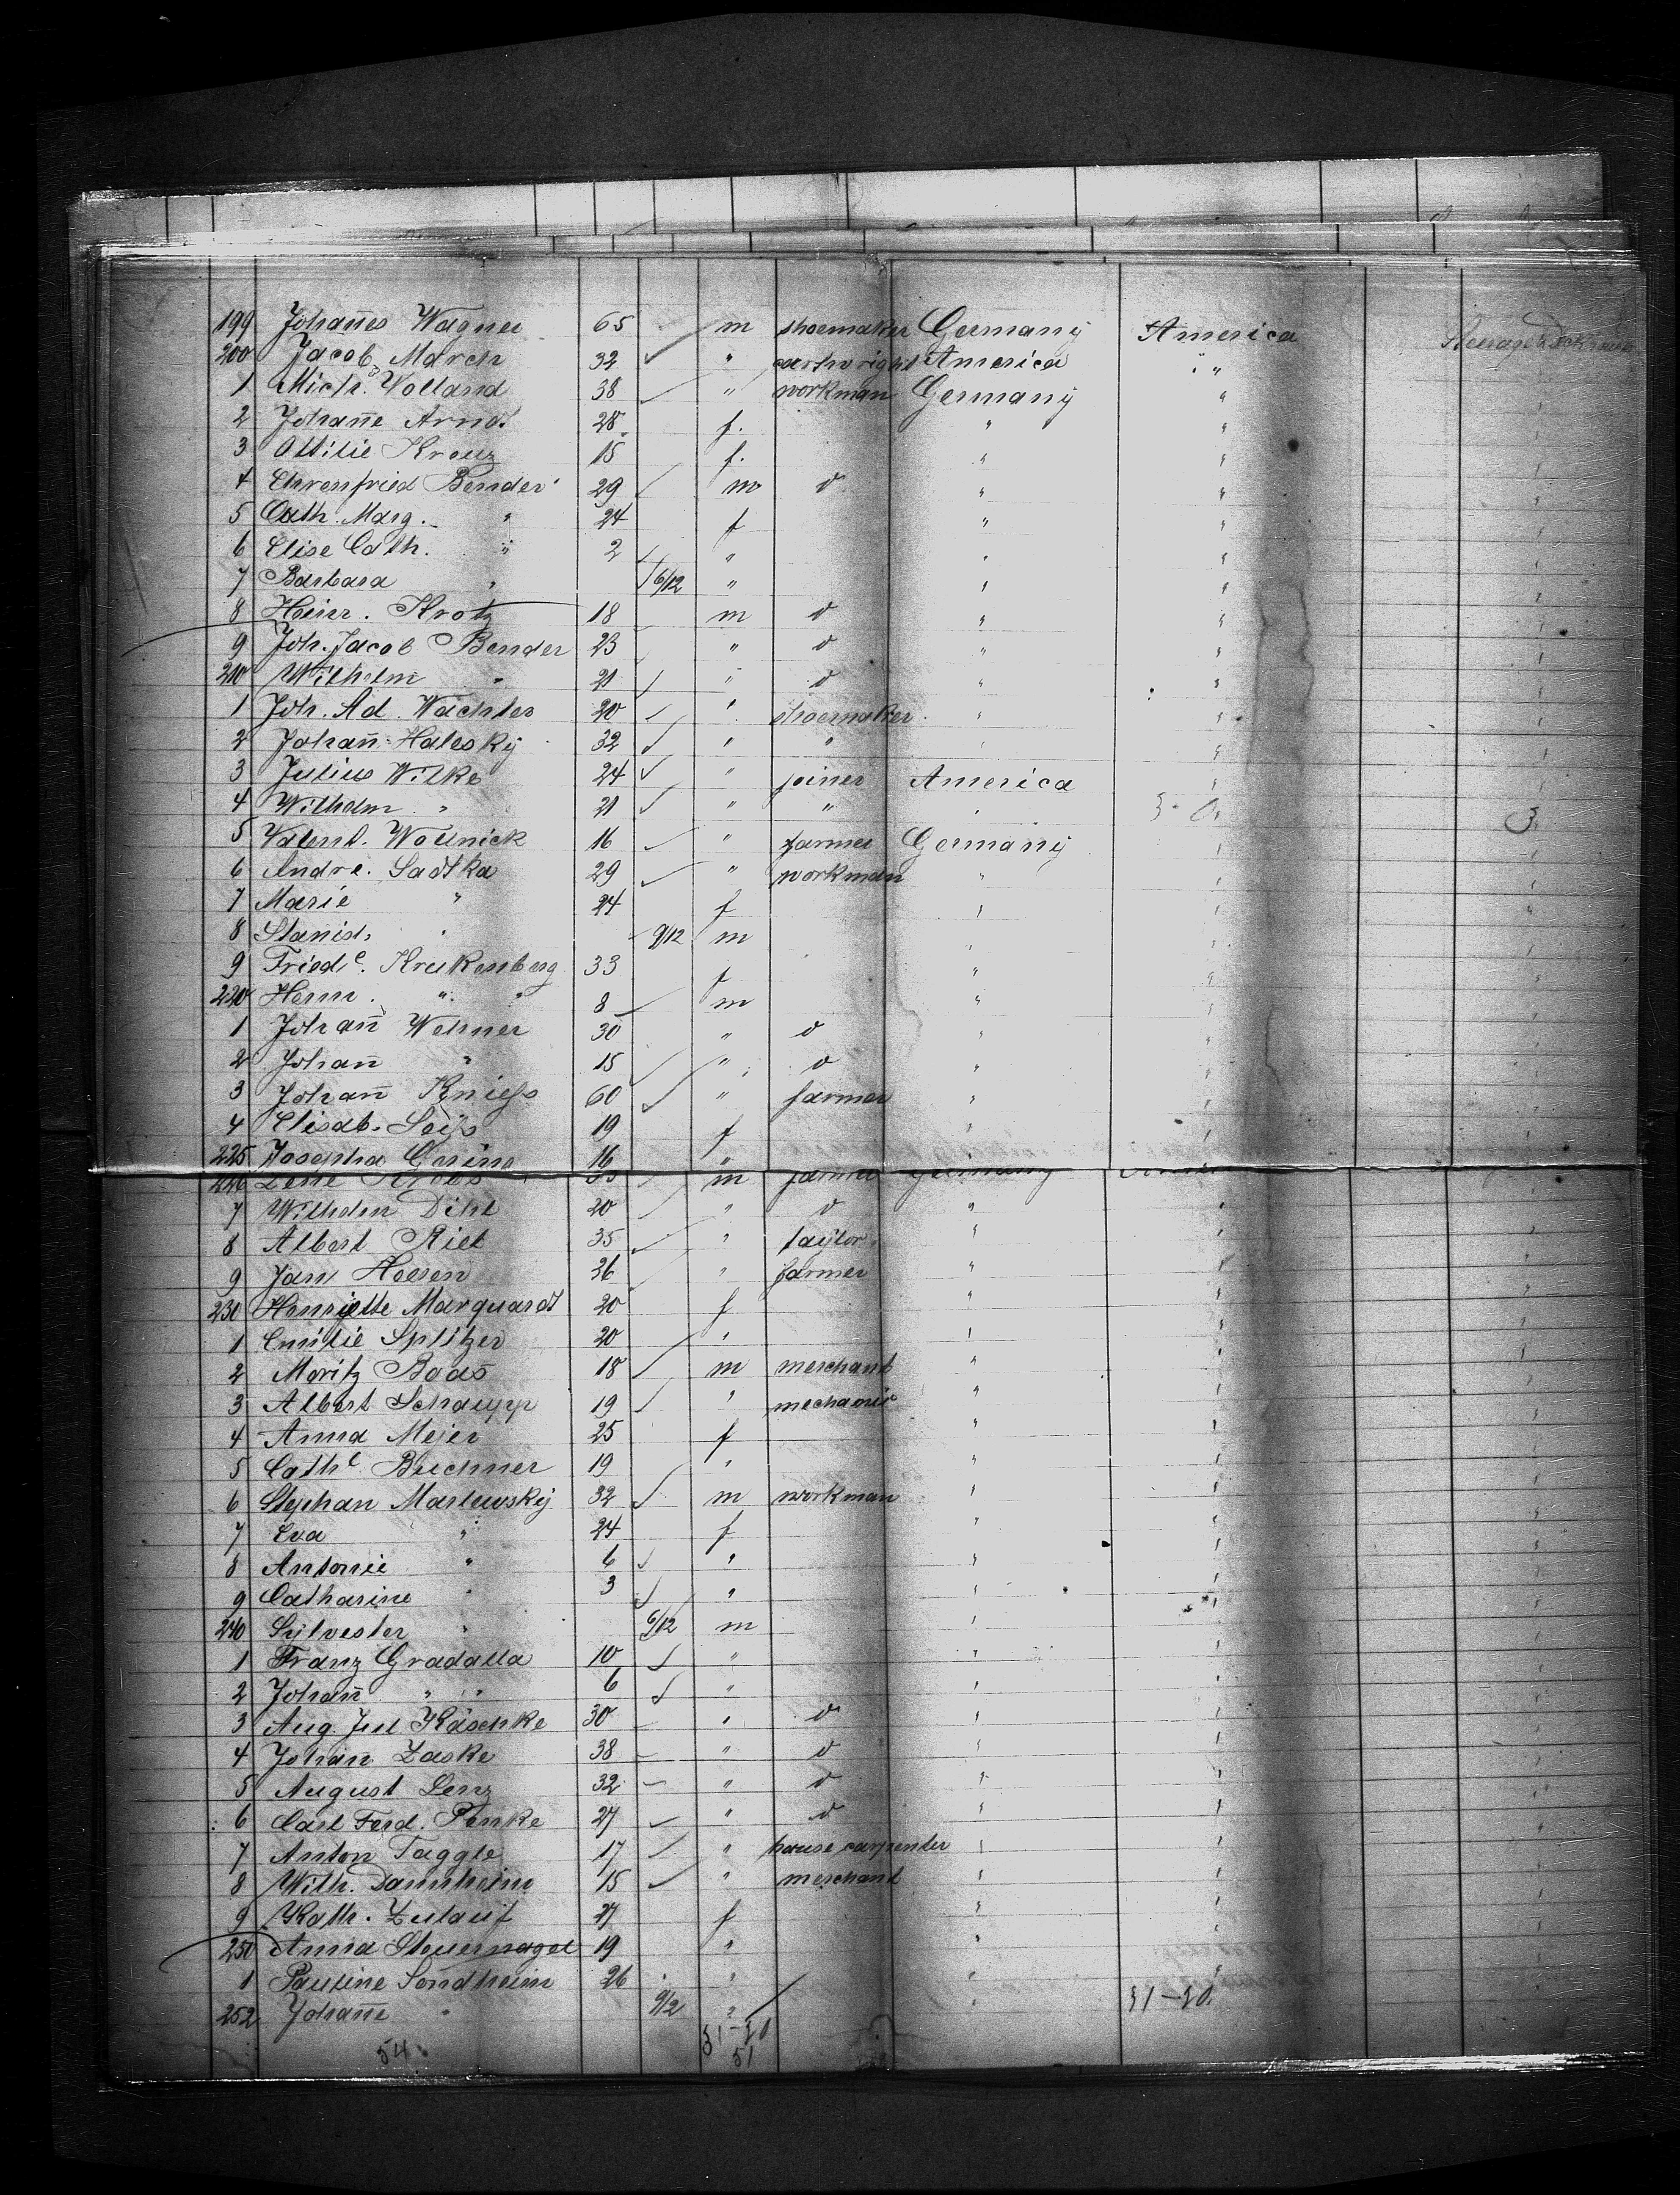 199 Johañes Wagner 65 m shoemaker Germany America Steerage
200 Jacob March 32 " cartwright America "
1 Mich. Volland 38 " workman Germany "
2 Johañe Arndt 28 f. " "
3 Ottilie Kreuz 15 f. " "
4 Ehrenfried Bender 29 m d " "
5 Cath. Marg. " 24 f " "
6 Elise Cath. " 2 " " "
7 Barbara " 6/12 " " "
8 Heinr. Krotz 18 m d " "
9 Joh. Jacob Bender 23 " d " "
210 Wilhelm " 21 " d " "
1 Joh. Ad. Wächter 20 " shoemaker " "
2 Johañ Halesky 32 " " " "
3 Julius Wilke 24 " joiner America "
4 Wilhelm " 21 " " "
5 Valent. Wollnick 16 " farmer Germany "
6 Andre. Sadtka 29 " workman " "
7 Marie " 24 f " "
8 Stanisl. " 9/12 m " "
9 Friedc. Krukenberg 33 f " "
220 Herm. " " 8 m " "
1 Johañ Wehner 30 " d " "
2 Johañ " 15 " d " "
3 Johañ Kniess 60 " farmer " "
4 Elisab. Seip 19 f " "
225 Josepha Gering 16 " " "
226 m farmer Germany
7 Wilhelm Dihl 20 " d " "
8 Albert Riet 35 " taylor " "
9 Jan Heeren 26 " farmer " "
230 Henriette Marquardt 20 f " "
1 Emilie Splitzer 20 " " "
2 Moritz Boas 18 m merchant " "
3 Albert Schaupp 19 " mechanic " "
4 Anna Meier 25 f " "
5 Cathe Buchner 19 " " "
6 Stephan Marlewsky 32 m workman " "
7 Eva " 24 f " "
8 Antonie " 6 " " "
9 Catharine " 3 " " "
240 Sylvester " 6/12 m " "
1 Franz Gradalla 10 " " "
2 Johañ " " 6 " " "
3 Aug. Jul Käschke 30 " d " "
4 Johan Zaske 38 " d " "
5 August Lenz 32 " d " "
6 Carl Ferd. Penke 27 " d " "
7 Anton Taggle 17 " house carpenter " "
8 Wilh. Dannheim 15 " merchant " "
9 Kath. Zulauf 27 f " "
250 Anna Steuernagel 19 " " "
1 Pauline Sondheim 26 " " "
252 Johañe " 9/12 " "
54 51